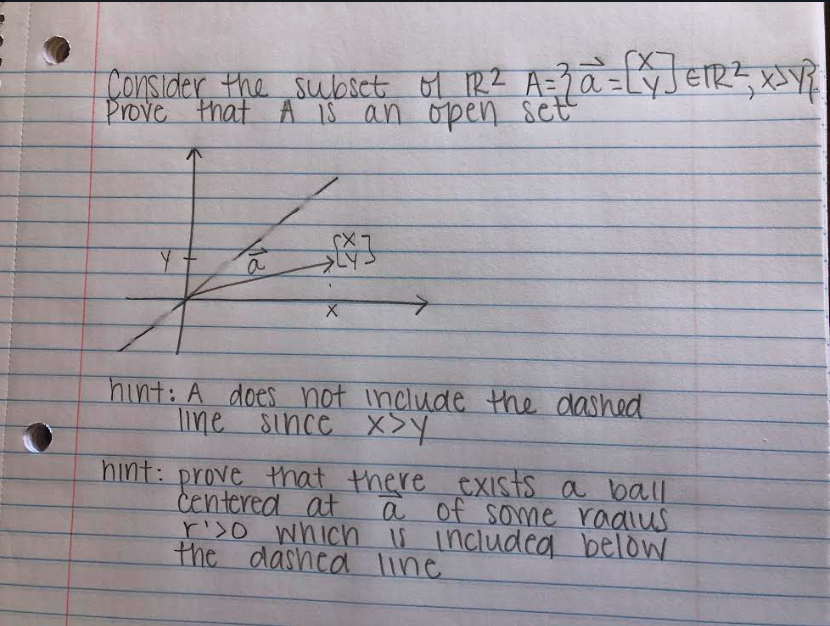 Consider the subset of ℝ² A={a⃗=[x y]∈ℝ², x>y}.
Prove that A is an open set
y
a⃗
[x y]
x
hint: A does not include the dashed
line since x>y
hint: prove that there exists a ball
centered at a⃗ of some radius
r'>0 which is included below
the dashed line